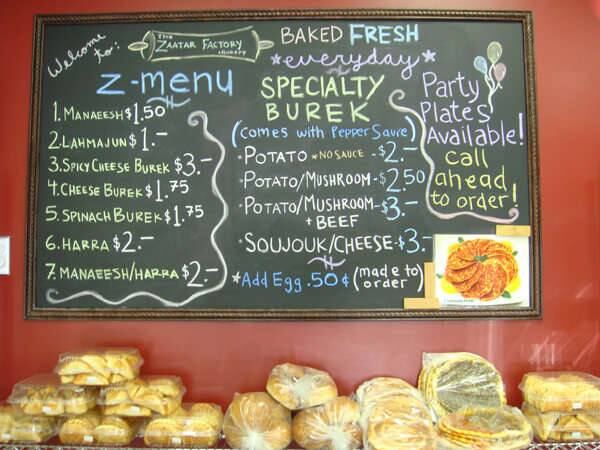 Welcome to:
THE
ZAATAR FACTORY
BAKERY
z-menu
1. MANAEESH $1.50
2. LAHMAJUN $1.—
3. SPICY CHEESE BUREK $3.—
4. CHEESE BUREK $1.75
5. SPINACH BUREK $1.75
6. HARRA $2.—
7. MANAEESH/HARRA $2.—
BAKED FRESH
*everyday*
SPECIALTY
BUREK
(COMES WITH PEPPER SAUCE)
• POTATO *NO SAUCE - $2.—
• POTATO/MUSHROOM - $2.50
• POTATO/MUSHROOM - $3.—
+ BEEF
• SOUJOUK/CHEESE - $3.—
*Add Egg .50¢ (made to order)
Party
Plates
Available!
call
ahead
to order!